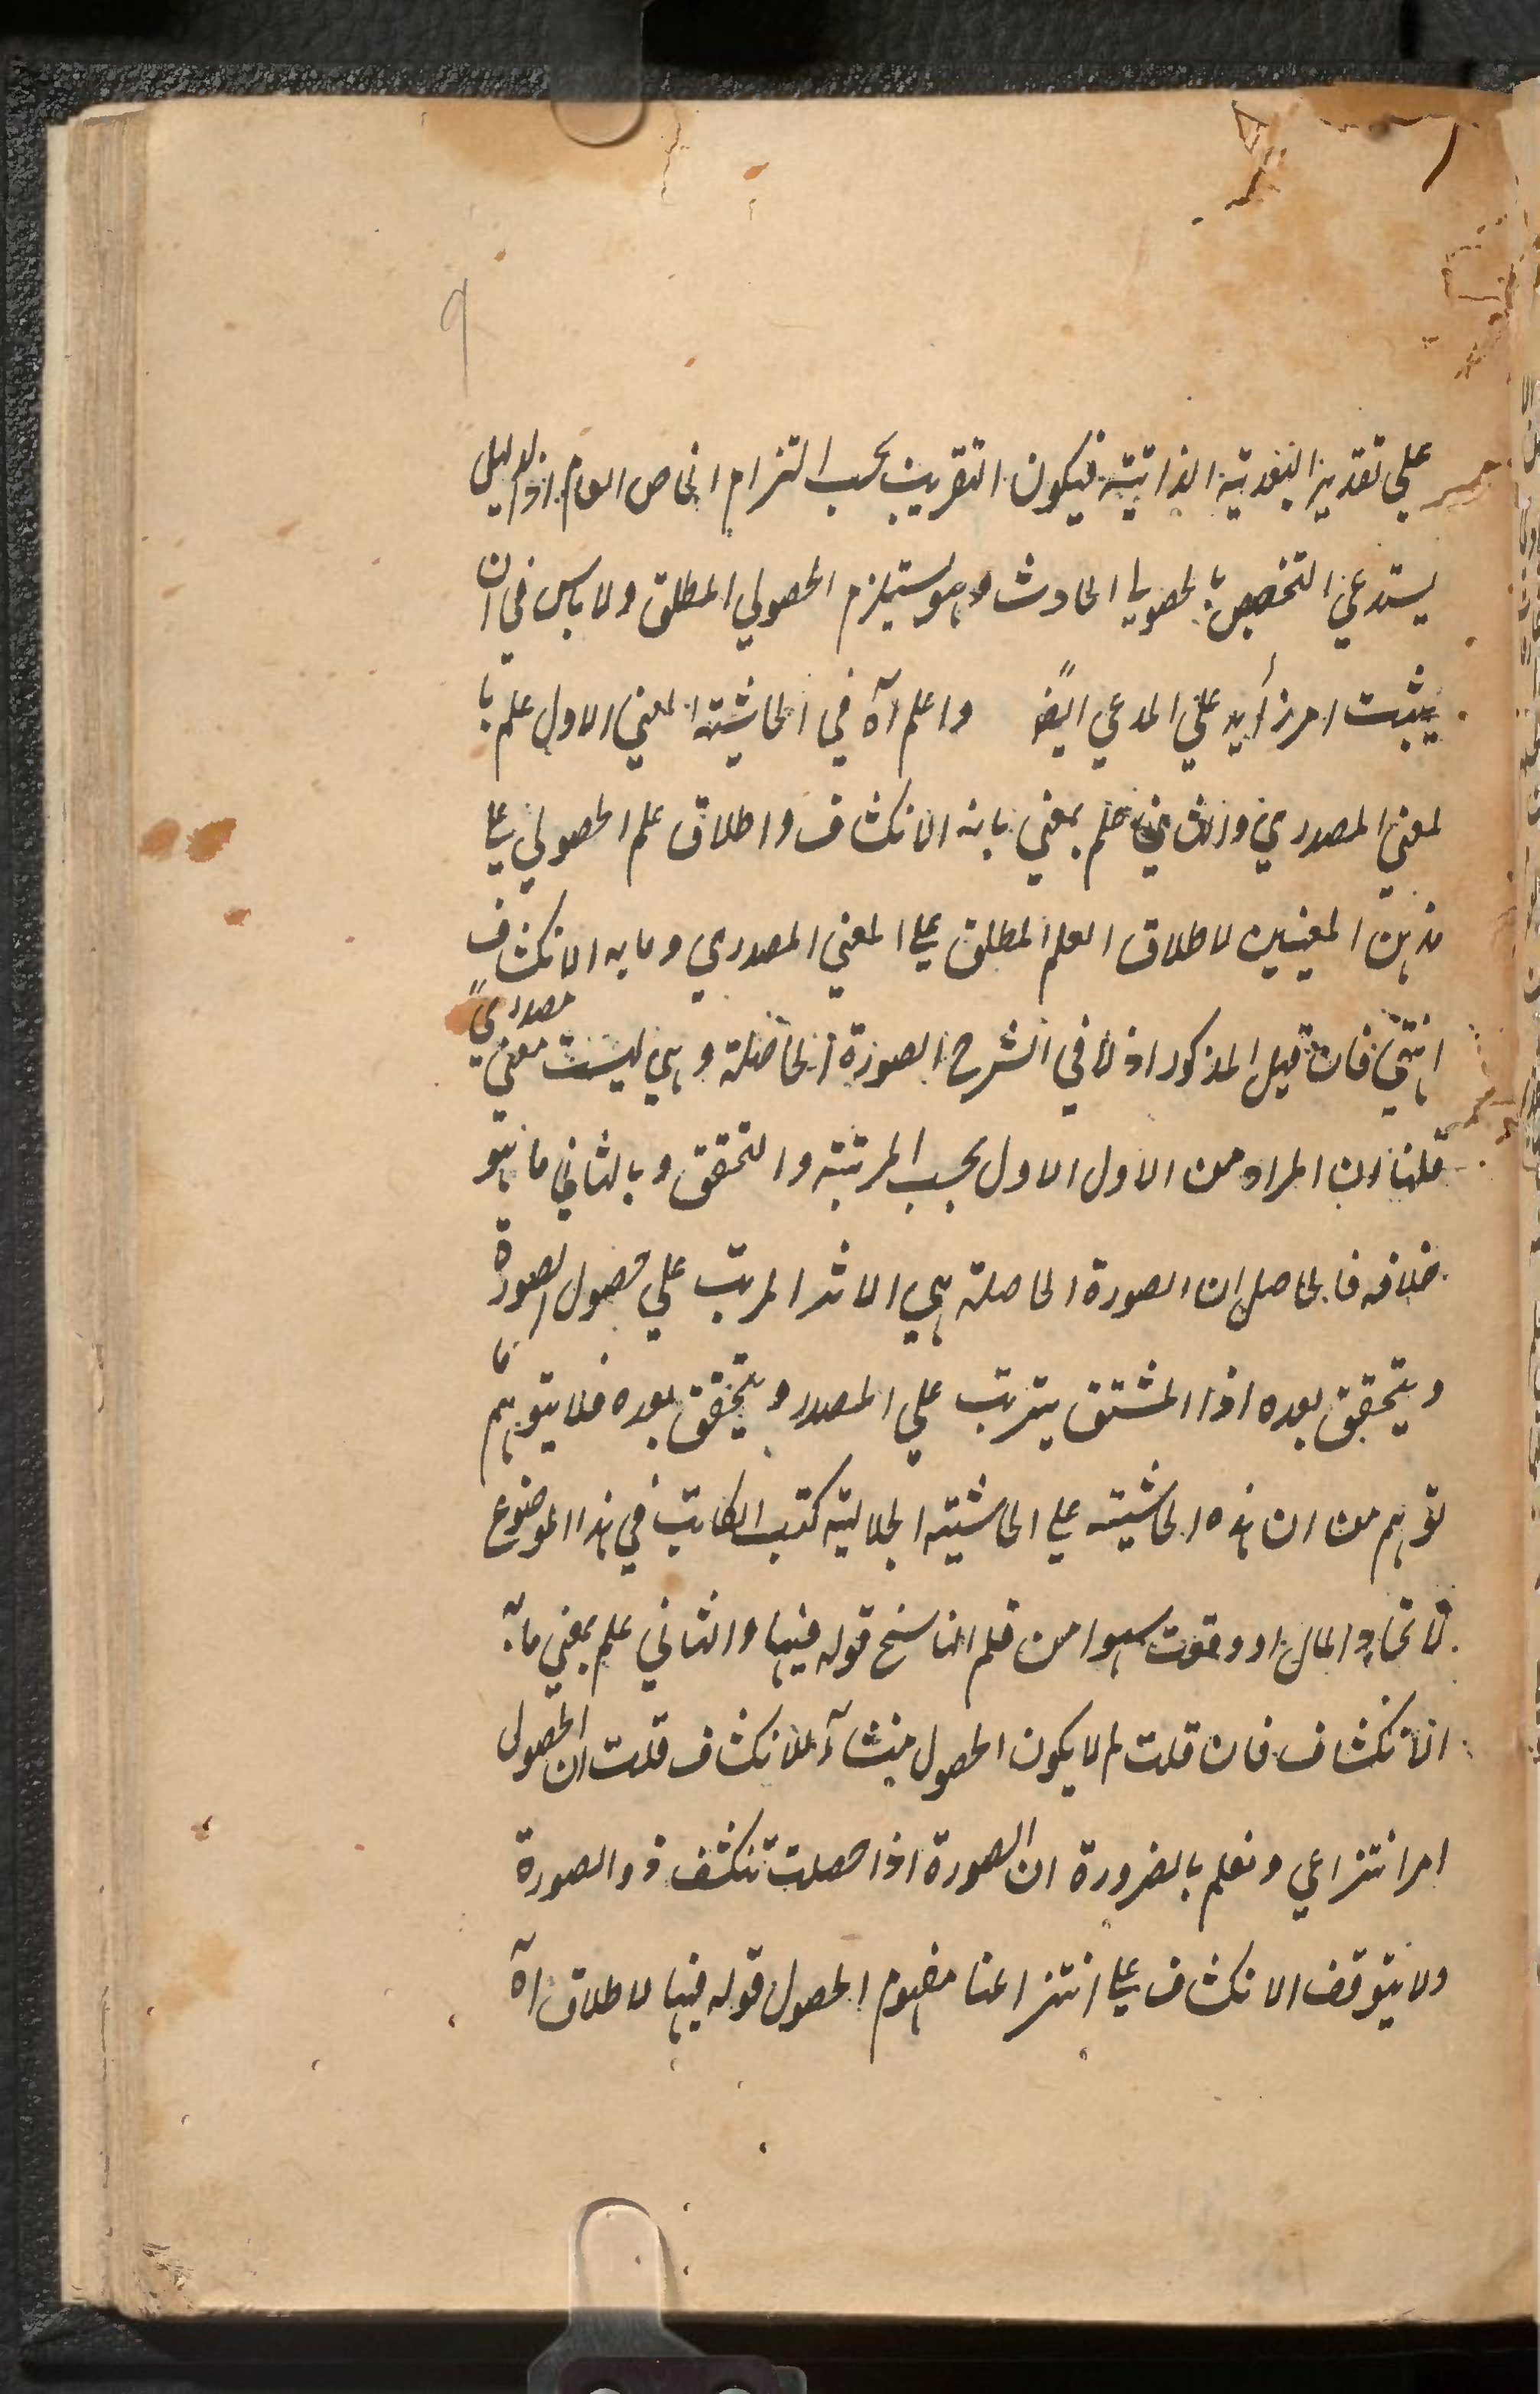 ٩
على تقدير البعدية الذاتية فيكون التقريب بحسب التزام الخاص العام اذ الدليل
يستدعي التخصيص بالحصولي الحادث وهو يستلزم الحصولي المطلق ولا باس في ان
يثبت امر زايد على المدعي ايضًا واعلم آه في الحاشية المعني الاول علم با
لمعني المصدري والثاني علم بمعني ما به الانكشاف واطلاق علم الحصولي على
هذين المعنيين لاطلاق العلم المطلق على المعني المصدري وما به الانكشاف
انتهي فان قيل المذكور اولا في الشرح الصورة الحاصلة وهي ليست معني مصدريًّا
قلنا ان المراد من الاول الاول بحسب المرتبة والتحقق وبالثاني ما هو
خلافه فالحاصل ان الصورة الحاصلة هي الاثر المرتب على حصول الصورة
ويتحقق بعده اذا المشتق يترتب على المصدر ويتحقق بعده فلا يتوهم ما
توهم من ان هذه الحاشية على الحاشية الجلالية كتب الكاتب في هذا الموضوع
لاتحاد المال او وقعت سهوا من قلم الناسخ قوله فيها والثاني علم بمعني ما به
الانكشاف فان قلت لم لا يكون الحصول منشآءً للانكشاف قلت ان الحصول
امر انتزاعي ونعلم بالضرورة ان الصورة اذا حصلت تنكشف ذو الصورة
ولا يتوقف الانكشاف على انتزاعنا مفهوم الحصول قوله فيها لاطلاق آه